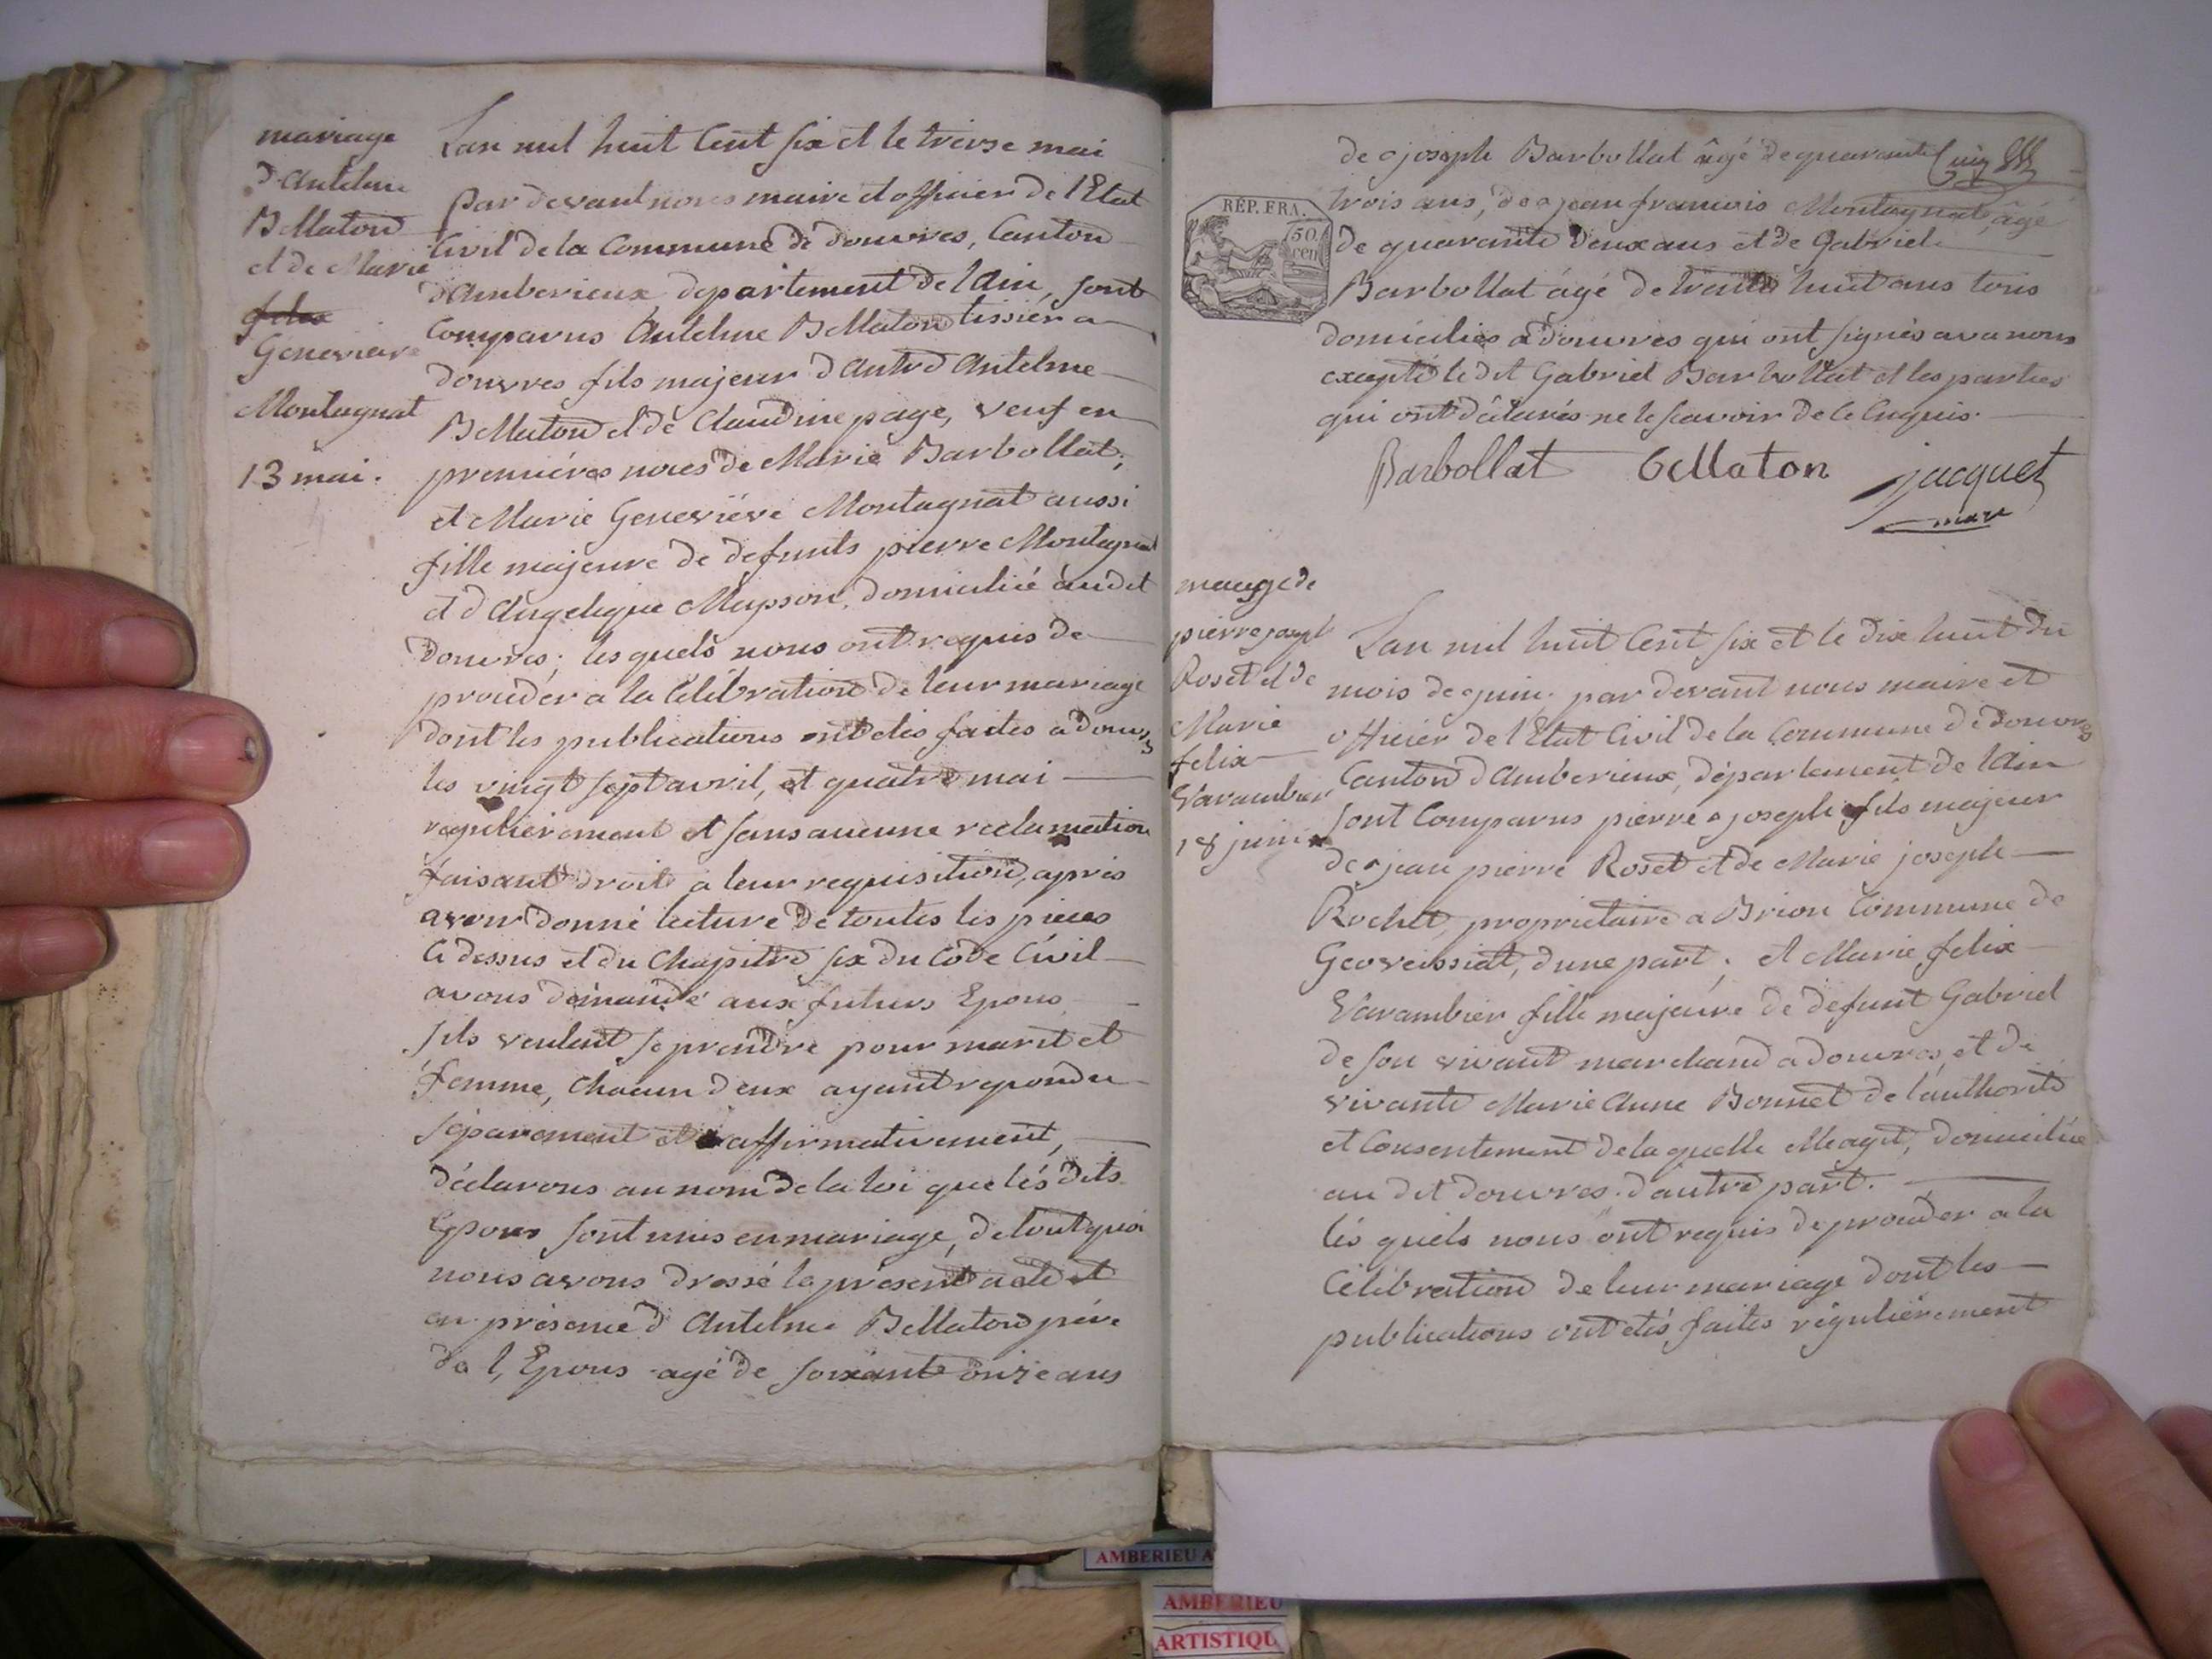 mariage
d'Antelme
Bellaton
et de Marie
felix
Genevieve
Montagnat
13 mai.
Lan mil huit Cent six et le treize mai
par devant nous maire et officier de l'Etat
Civil de la Commune de douvres, Canton
d'Amberieux departement de l'Ain, sont
Comparus Antelme Bellaton tissier a
douvres fils majeur d'autre Antelme
Bellaton et de Claudine page, veuf en
premières noces de Marie Barbollat;
et Marie Geneviève Montagnat aussi
fille majeure de defunts pierre Montagnat
et d'Angelique domicilié audit
douvres; les quels nous ont requis de
proceder a la Célébration de leur mariage
dont les publications ont etés faites a douvres
les vingt sept avril, et quatre mai
regulièrement et sans aucune reclamation
faisant droit a leur requisition, apris
avoir donné lecture de toutes les pieces
Ci dessus et du Chapitre six du Code Civil
avons demandé aux futurs Epous
sils veulent se prendre pour marit et
femme, Chacun deux ayant repondu
séparement et affirmativement,
déclarons au nom de la loi que les dits
Epous sont unis en mariage, de tout quoi
nous avons dressé le présent acte et
en présence d'Antelme Bellaton père
de l'Epous agé de soixante onze ans
de joseph Barbollat âgé de quarante
RÉP. FRA.
50
cen
trois ans, de jean francois Montagnat, âgé
de quarante deux ans et de Gabriel
Barbollat âgé de trente huit ans tous
domiciliés a douvres qui ont signés avec nous
excepté le dit Gabriel Barbollat et les parties
qui ont déclarés ne le scavoir de ce Enquis.
Barbollat bellaton jacquet
maire
mariage de
pierre joseph
Roset et de
Marie
felix
Varambier
18 juin
Lan mil huit Cent six et le dix huit du
mois de juin, par devant nous maire et
officier de l'Etat Civil de la Commune de douvres
Canton d'Amberieux, département de l'Ain
sont Comparus pierre joseph fils majeur
de jean pierre Roset et de Marie joseph
Rochet, proprietaire a Brion Commune de
Geovreissiat, dune part; et Marie felix
Varambier fille majeure de defunt Gabriel
de son vivant marchand a douvres, et de
vivante Marie Anne Bonnet de l'authorité
et Consentement de la quelle Elle agit, domiciliée
au dit douvres. d'autre part.
les quels nous ont requis de proceder a la
Célébration de leur mariage dont les
publications ont etés faites régulièrement
AMBERIEU A
AMBERIEU
ARTISTIQU